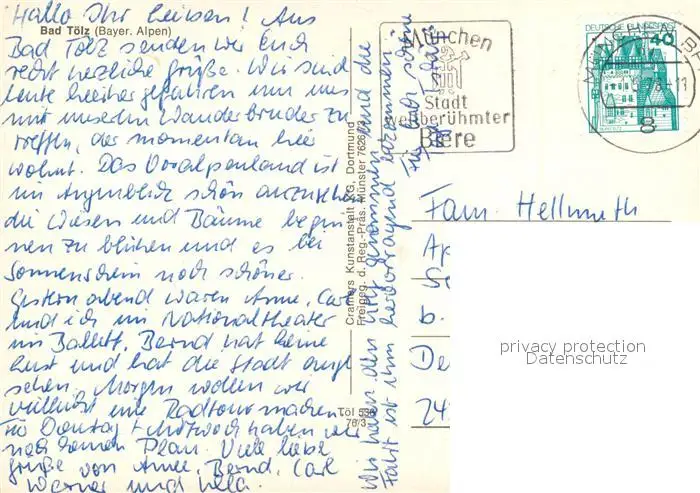 Hallo Ihr Lieben! Aus
Bad Tölz (Bayer. Alpen)
Bad Tölz senden wir Euch
recht herzliche Grüße. Wir sind
heute hierher gefahren um uns
mit unserem Wanderbruder zu
treffen, der momentan hier
wohnt. Das Voralpenland ist
im Augenblick schön anzusehen
die Wiesen und Bäume begin-
nen zu blühen und es bei
Sonnenschein noch schöner.
Gestern abend waren Anne, Carl
und ich im Nationaltheater
im Ballett. Bernd hat keine
Lust und hat die Stadt ange-
sehen. Morgen wollen wir
vielleicht eine Radtour machen
Für Dienstag + Mittwoch haben wir
noch keinen Plan. Viele liebe
Grüße von Anne, Bernd, Carl
Werner und
Wir haben den genommen und die
Fahrt ist ihm hervorragend bekommen
Für Euch schöne
Cramers Kunstanstalt KG, Dortmund
Freigeg. d. Reg.-Präs. Münster
Töl 536
76/3
München
Stadt
weltberühmter
Biere
DEUTSCHE BUNDESPOST
40
8
Fam. Hellmuth
Ap
b.
De
24
privacy protection
Datenschutz